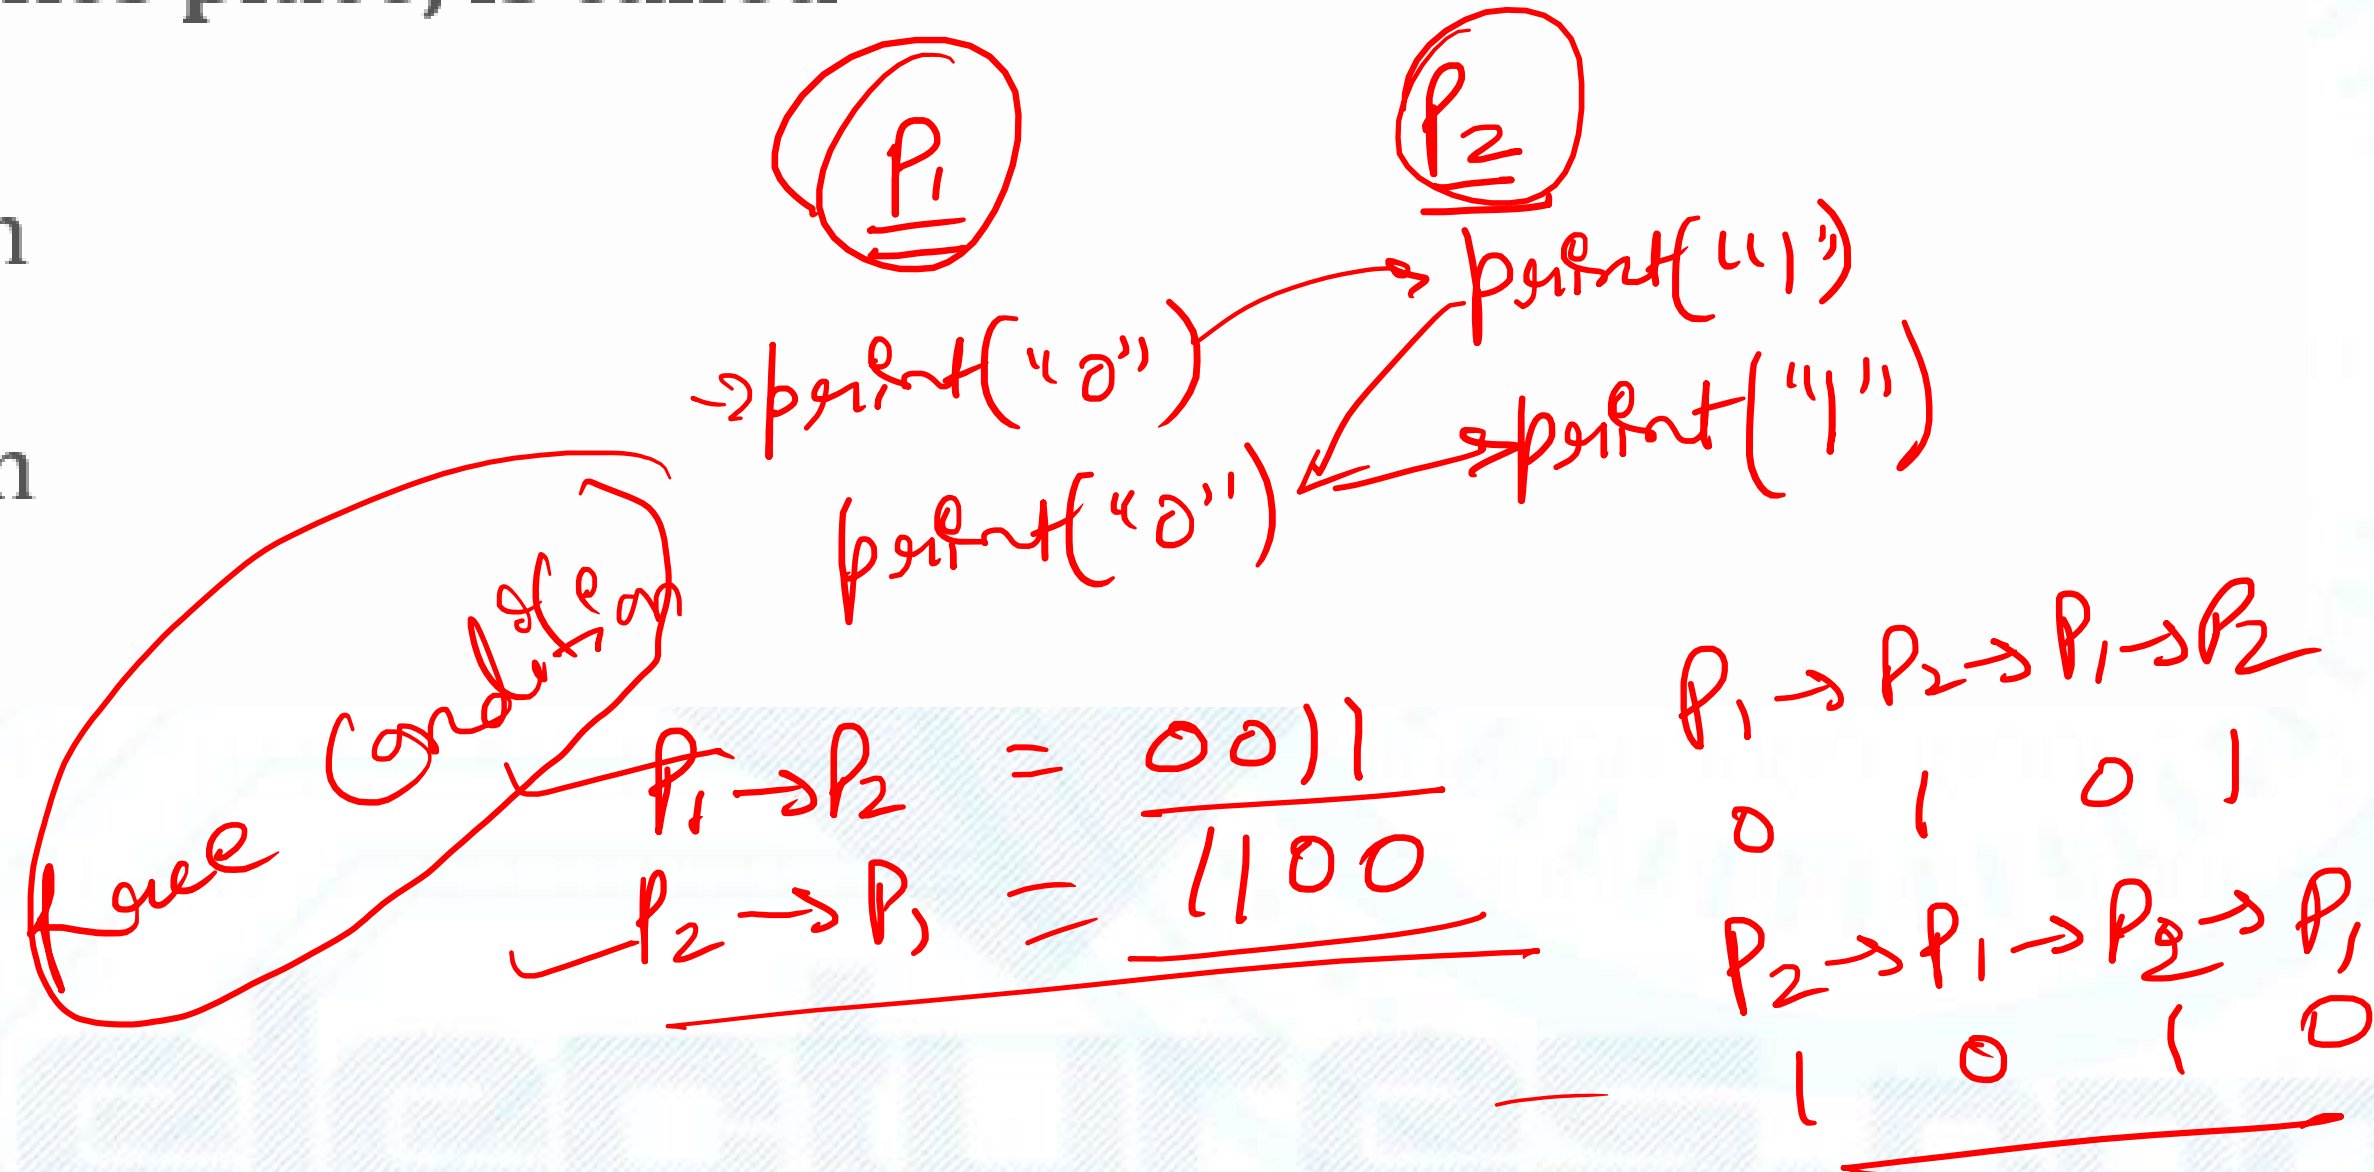 P1
P2
print("1")
→print("0")
print("1")
print("0")
Race Condition
P1→P2 = 0011
P2→P1 = 1100
P1→P2→P1→P2
0 1 0 1
P2→P1→P2→P1
1 0 1 0